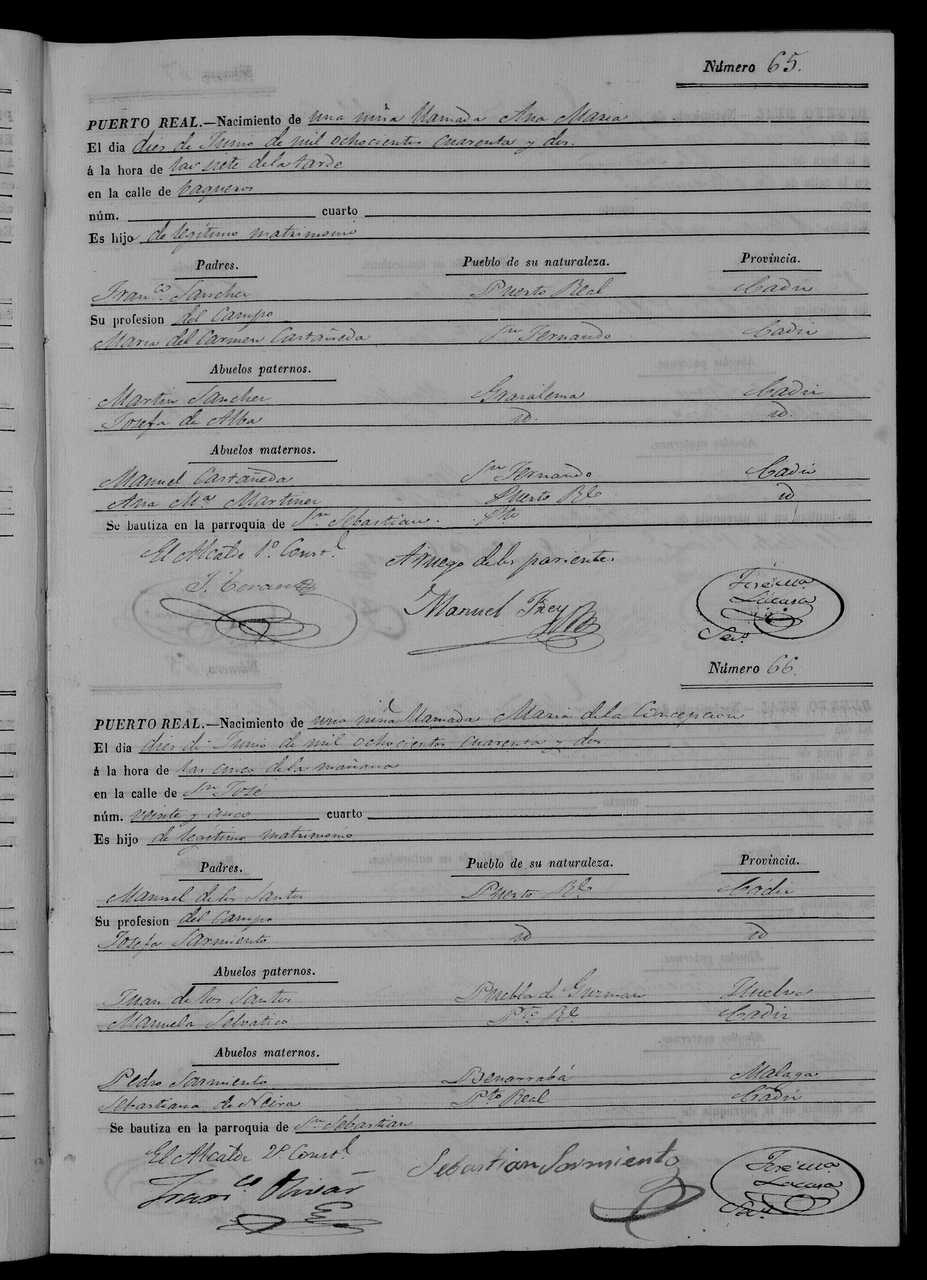 Número 65.
PUERTO REAL.—Nacimiento de una niña llamada Ana Maria
El dia dies de Junio de mil ochocientos cuarenta y dos.
á la hora de las siete de la tarde
en la calle de Baqueros
núm. cuarto
Es hijo de legitimo matrimonio
Padres. Pueblo de su naturaleza. Provincia.
Franco. Sanchez Puerto Real Cadiz
Su profesion del Campo
Maria del Carmen Castañeda Sn Fernando Cadiz
Abuelos paternos.
Martin Sanchez Grazalema Cadiz
Josefa de Alba id. id.
Abuelos maternos.
Manuel Castañeda Sn Fernando Cadiz
Ana Ma. Martinez Puerto Rl id
Se bautiza en la parroquia de Sn Sebastian. Pto
El Alcalde 1º Constl. A ruego de los parientes
Manuel Frey
José Ma. Lacasa
Seco.
Número 66.
PUERTO REAL.—Nacimiento de una niña llamada Maria de la Concepcion
El dia dies de Junio de mil ochocientos cuarenta y dos
á la hora de las cinco de la mañana
en la calle de Sn José
núm. veinte y cinco cuarto
Es hijo de legitimo matrimonio
Padres. Pueblo de su naturaleza. Provincia.
Manuel de los Santos Puerto Rl Cádiz
Su profesion del Campo
Josefa Sarmiento id id
Abuelos paternos.
Juan de los Santos Puebla de Guzman Huelva
Manuela Selvatico Pto. Rl Cadiz
Abuelos maternos.
Pedro Sarmiento Benarrabá Malaga
Sebastiana de Neira Pto Real Cadiz
Se bautiza en la parroquia de Sn Sebastian
El Alcalde 2º Constl. Sebastian Sarmiento
Franco Olivar
José Ma. Lacasa